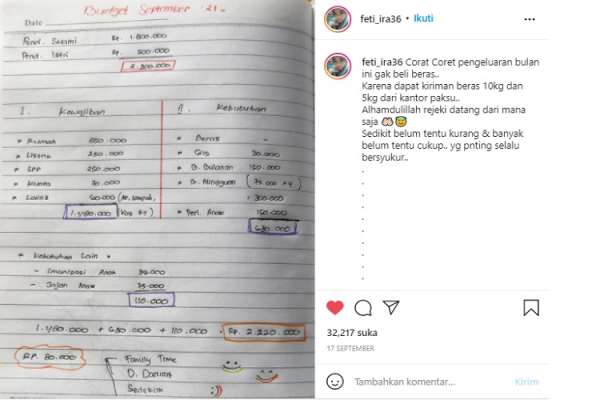 Budget September '21
Date
Pend. Suami Rp. 1.800.000
Pend. Istri Rp. 500.000
2.300.000
I. Kewajiban
II. Kebutuhan
250.000
* SPP 250.000
1.480.000
* Beras -
* Gas
* B. Bulanan 150.000
* B. Mingguan (75.000 x 4)
= 300.000
150.000
630.000
* Kebutuhan Lain *
- Imunisasi Anak
- Jajan Anak
110.000
1.480.000 + 630.000 + 110.000 = Rp. 2.220.000
RP. 80.000
Family Time
D. Darurat
Sedekah
feti_ira36 • Ikuti
feti_ira36 Corat Coret pengeluaran bulan
ini gak beli beras..
Karena dapat kiriman beras 10kg dan
5kg dari kantor paksu..
Alhamdulillah rejeki datang dari mana
saja
Sedikit belum tentu kurang & banyak
belum tentu cukup.. yg pnting selalu
bersyukur..
.
.
.
.
.
.
.
.
32,217 suka
17 SEPTEMBER
Tambahkan komentar...
Kirim